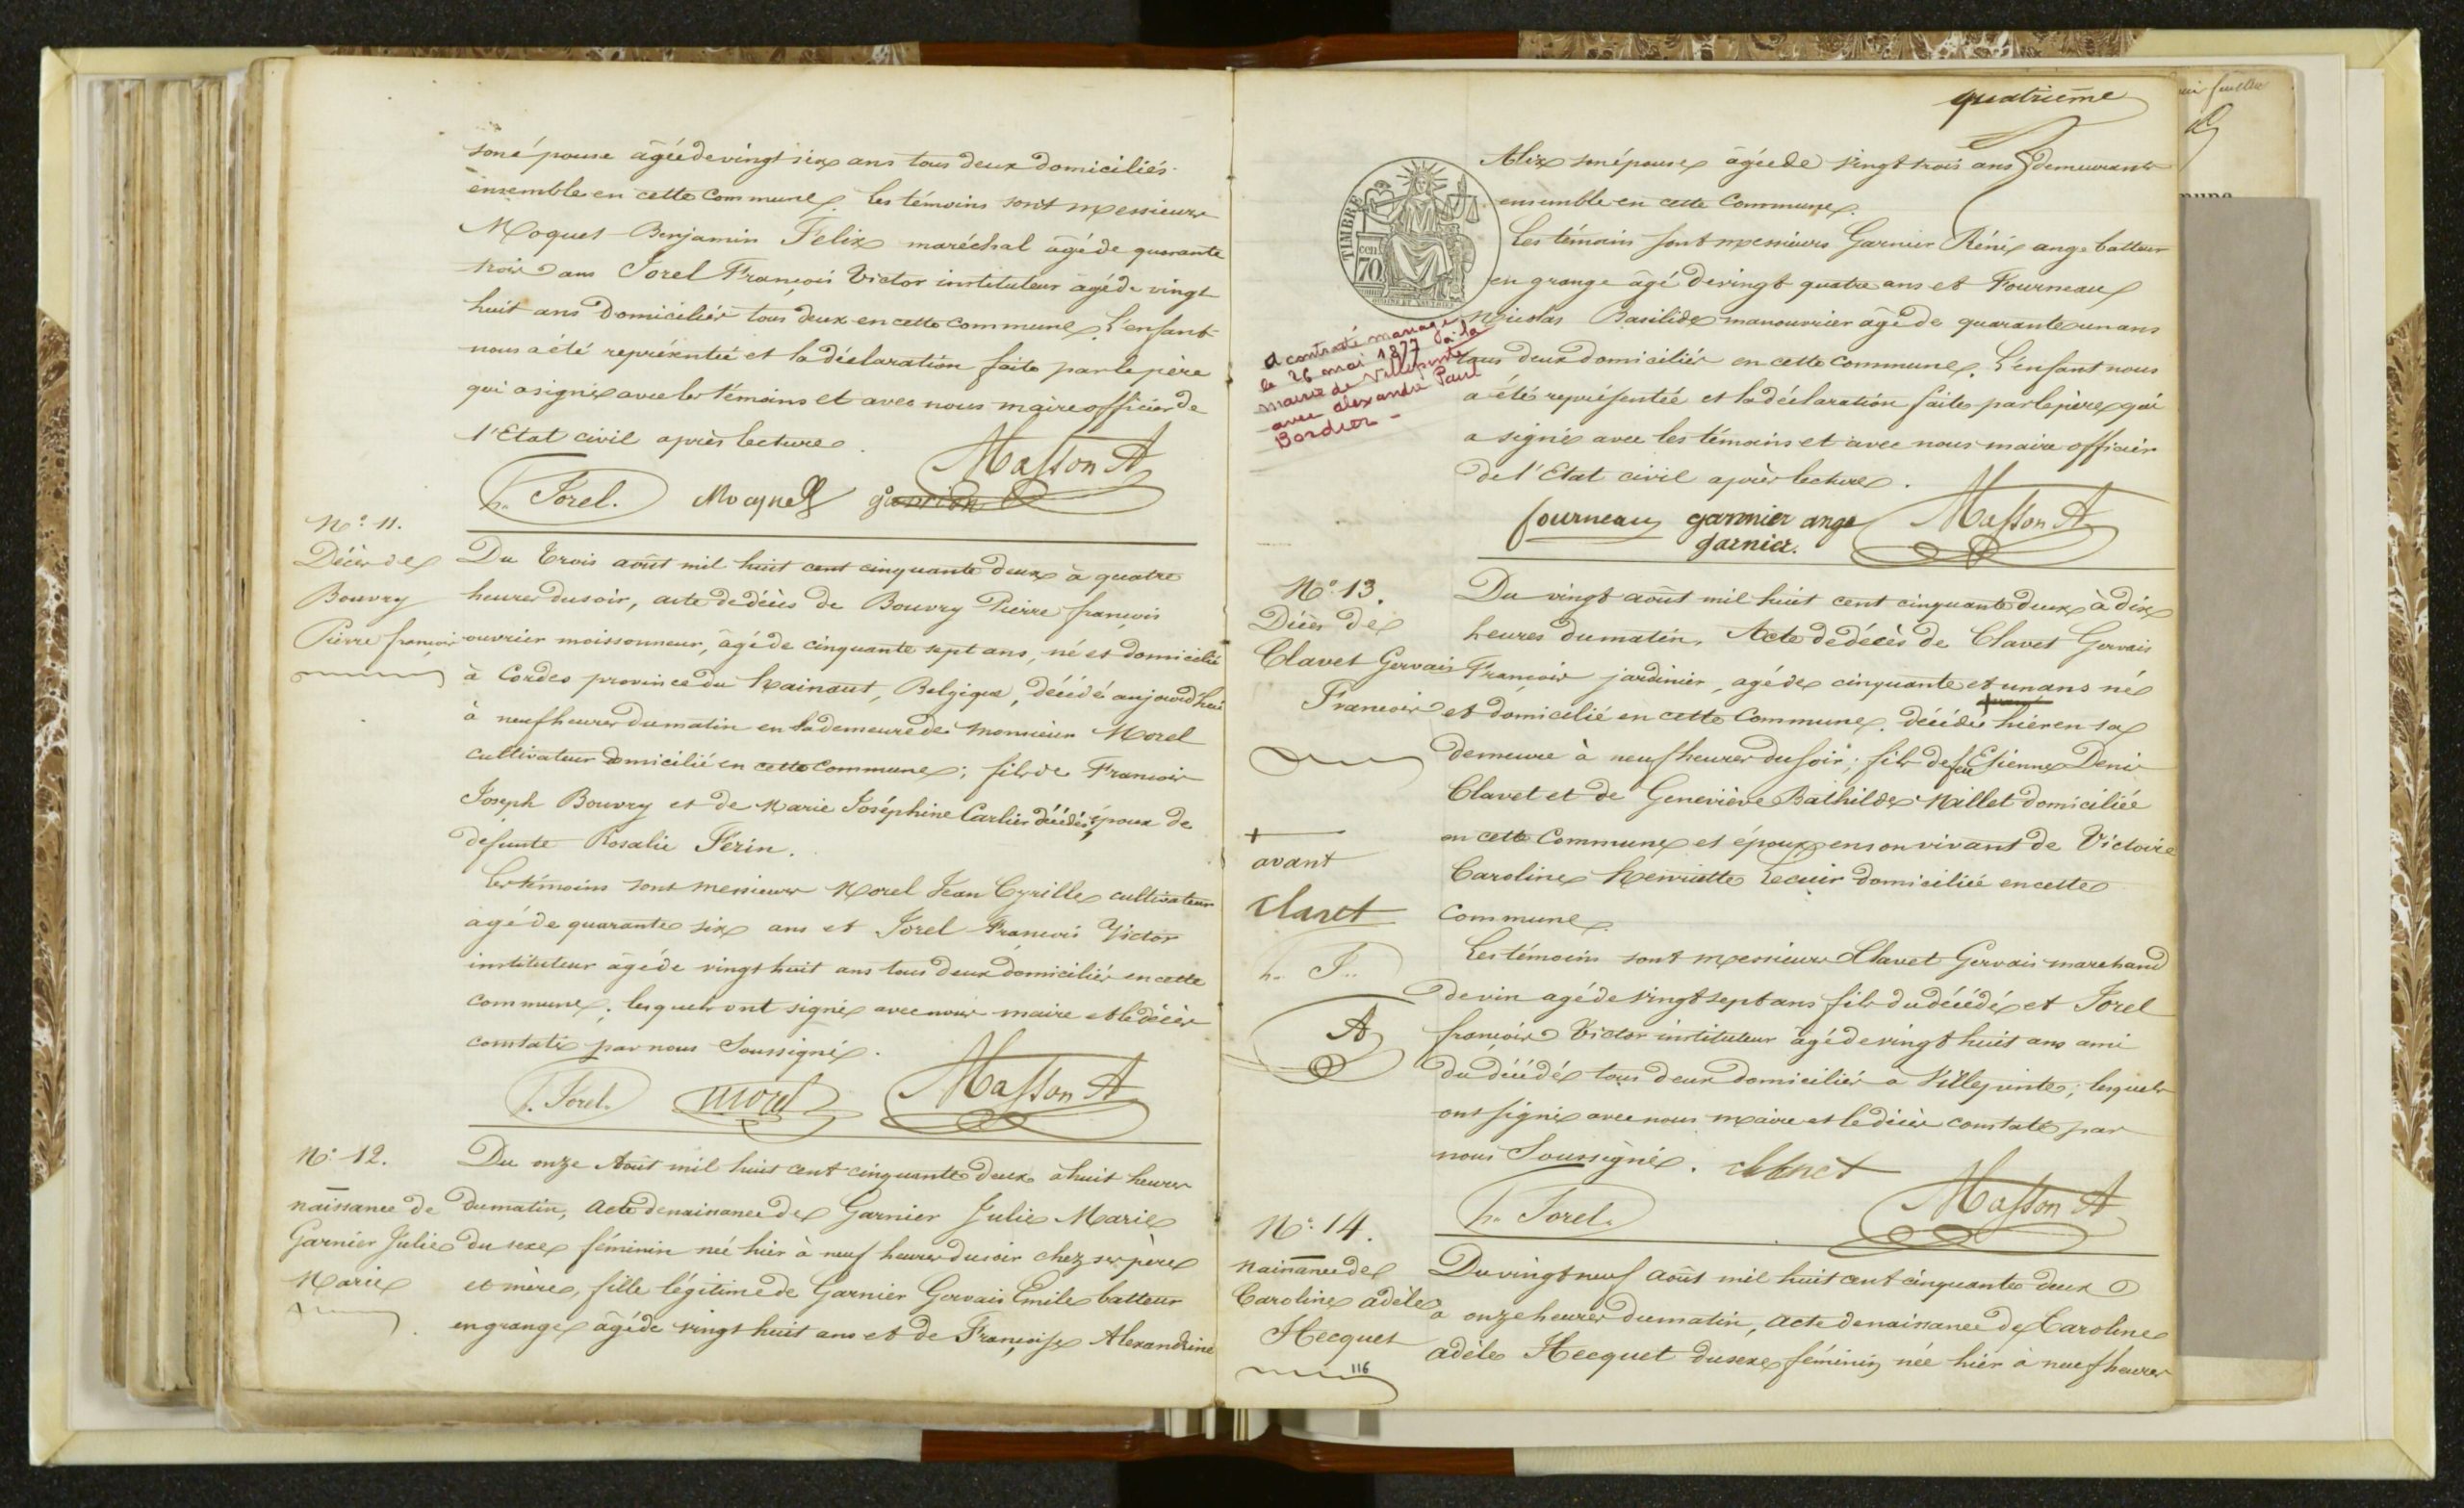 son épouse âgée de vingt six ans tous deux domiciliés
ensemble en cette commune. Les témoins sont messieurs
Moquet Benjamin Felix maréchal âgé de quarante
trois ans Jorel François Victor instituteur âgé de vingt
huit ans domiciliés tous deux en cette commune. L'enfant
nous a été représentée et la déclaration faite par le père
qui a signé avec les témoins et avec nous maire officier de
l'Etat civil après lecture.
Masson A
h. Jorel. Moquet
N° 11.
Décès de
Bouvry
Pierre françois
Du trois août mil huit cent cinquante deux à quatre
heures du soir, acte de décès de Bouvry Pierre françois
ouvrier moissonneur, âgé de cinquante sept ans, né et domicilié
à Cordes province du hainaut, Belgique, décédé aujourd'hui
à neuf heures du matin en la demeure de monsieur Morel
cultivateur domicilié en cette commune; fils de François
Joseph Bouvry et de Marie Joséphine Carlier décédés, époux de
defunte Rosalie Ferin.
Les témoins sont messieurs Morel Jean Cyrille cultivateur
agé de quarante six ans et Jorel François Victor
instituteur âgé de vingt huit ans tous deux domiciliés en cette
commune; lesquels ont signé avec nous maire et le décès
constaté par nous Soussigné.
h. Jorel. morel Masson A
N° 12.
naissance de
Garnier Julie
Marie
Du onze Août mil huit cent cinquante deux à huit heures
du matin, acte de naissance de Garnier Julie Marie
du sexe féminin née hier à neuf heures du soir chez ses père
et mère, fille légitime de Garnier Gervais Emile batteur
en grange âgé de vingt huit ans et de Françoise Alexandrine
quatrième
TIMBRE
70 cen
Alix son épouse âgée de vingt trois ans demeurant
ensemble en cette Commune.
Les témoins sont messieurs Garnier Réné ange batteur
en grange âgé de vingt quatre ans et Fourneau
Nicolas Basilide manouvrier âgé de quarante un ans
tous deux domiciliés en cette commune. L'enfant nous
a été représentée et la déclaration faite par le père qui
a signé avec les témoins et avec nous maire officier
de l'Etat civil après lecture.
A contracté mariage
le 26 mai 1877 à la
mairie de Villepinte
avec alexandre Paul
Bordier -
fourneau garnnier ange Masson A
garnier.
N° 13.
Décès de
Clavet Gervais
François
Du vingt août mil huit cent cinquante deux à dix
heures du matin. Acte de décès de Clavet Gervais
François jardinier, agé de cinquante et un ans né
et domicilié en cette Commune. décédé hier en sa
demeure à neuf heures du soir; fils de feu Etienne Denis
Clavet et de Geneviève Bathilde Millet domiciliée
en cette Commune et époux en son vivant de Victoire
Caroline henriette Lecuir domiciliée en cette
commune.
Les témoins sont messieurs Clavet Gervais marchand
de vin agé de vingt sept ans fils du décédé et Jorel
françois Victor instituteur âgé de vingt huit ans ami
du décédé tous deux domiciliés a Villepinte; lesquels
ont signé avec nous maire et le décès constaté par
nous Soussigné. clavet
h. Jorel. Masson A
avant
Clavet
h. J..
A
N° 14.
naissance de
Caroline adèle
Hecquet
Du vingt neuf août mil huit cent cinquante deux
a onze heures du matin, acte de naissance de Caroline
adèle Hecquet du sexe féminin née hier à neuf heures
116